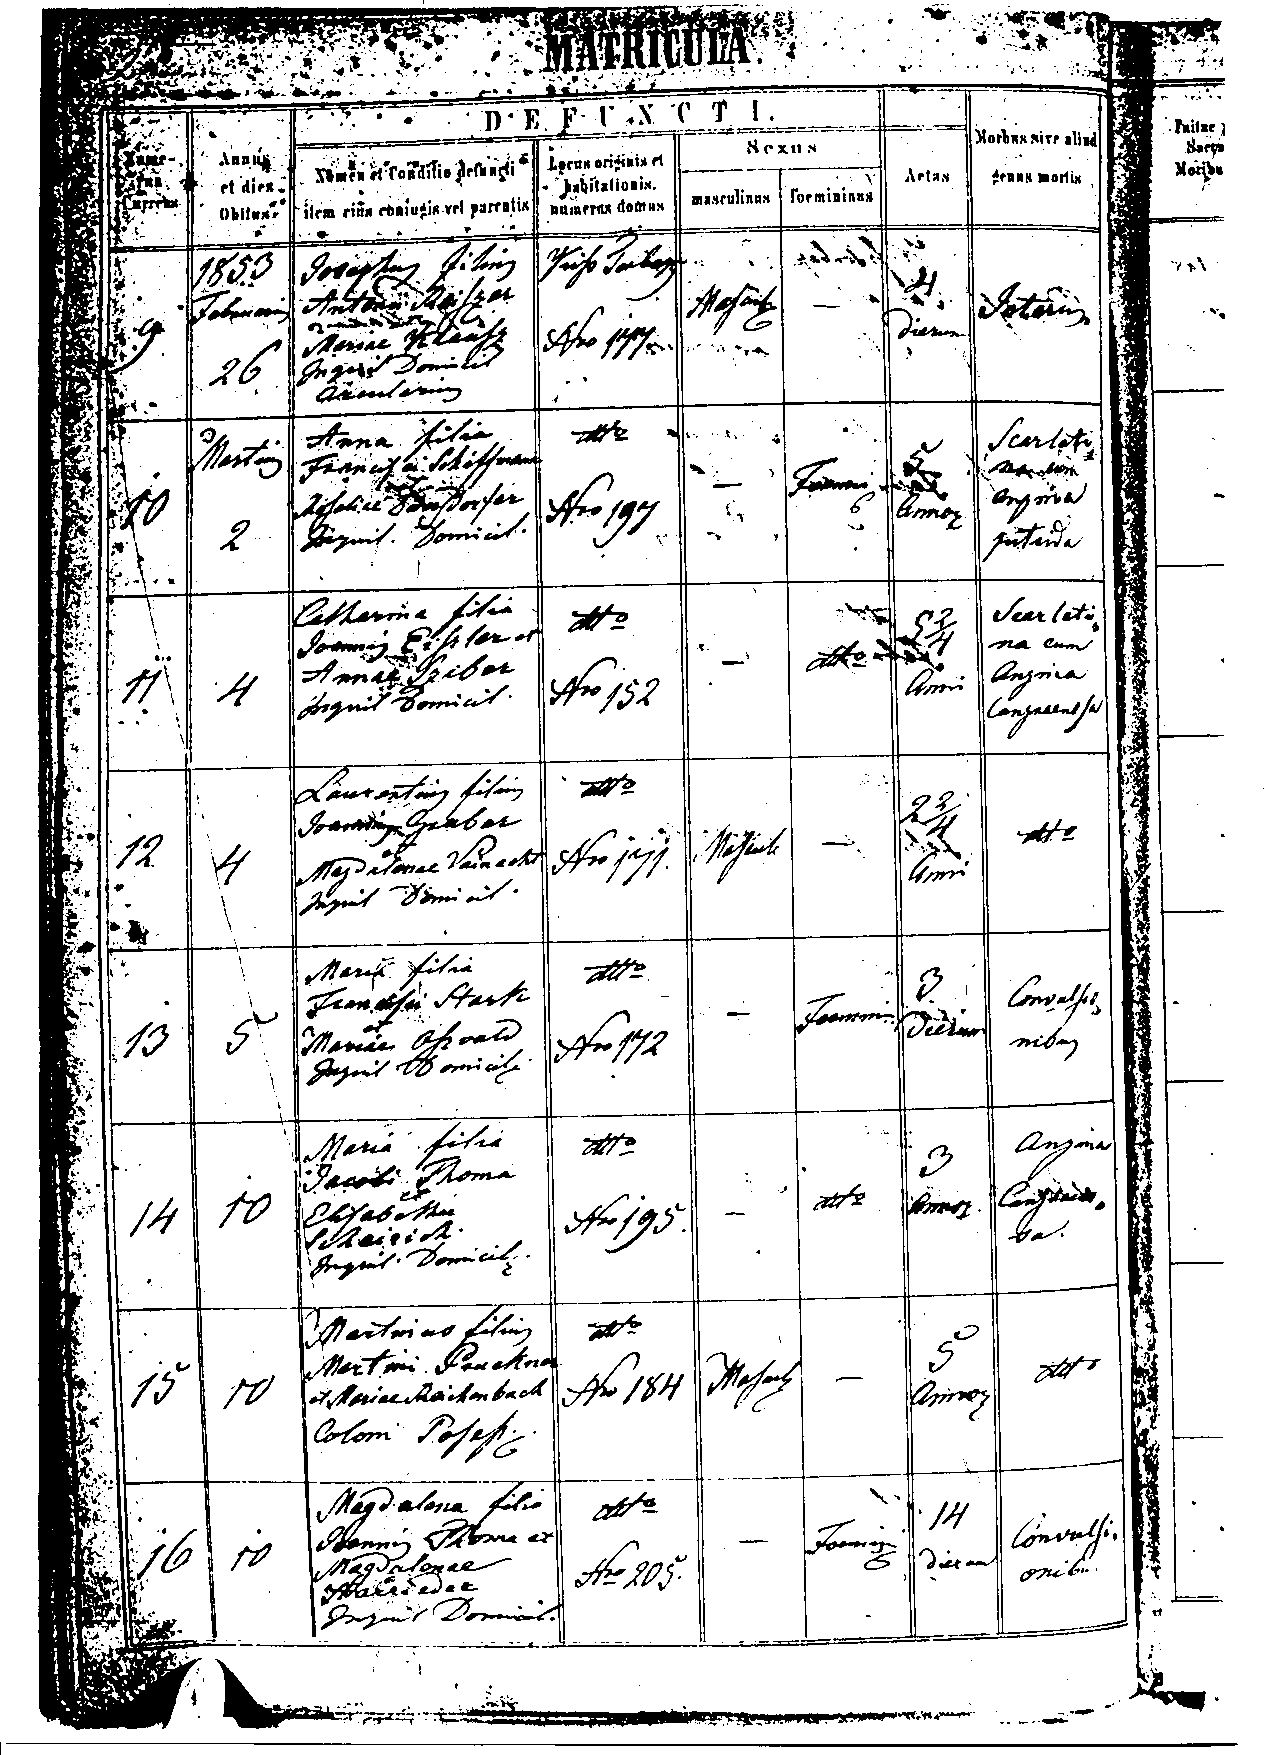 MATRICULA.
DEFUNCTI.
Nume-
rus
Currens
Annus
et dies
Obitus.
Nomen et Conditio defuncti
item eius coniugis vel parentis
Locus originis et
habitationis.
numerus domus
Sexus
masculinus
foemininus
Aetas
Morbus sive aliud
genus mortis
9
1853
Februarii
26
Josephus filius
Antonii
Mariae
Inquil Domicil
Arcularius
Nro 177.
Mascul
—
4
dierum
10
Martius
2
Anna filia
Francisci Schiffmann
Rosaliae
Inquil. Domicil.
dtto
Nro 197
—
Foemini
5
Annor
Scarlati
na cum
angina
putrida
11
4
Catharina filia
Joannis Eisler et
Annae Greber
Inquil Domicil.
dtto
Nro 152
—
dtto
5 2/4
Anni
Scarlati
na cum
Angina
Cangraenosa
12
4
Laurentius filius
Joannis Graber
Magdalenae Vainacht
Inquil Domicil.
dtto
Nro 171.
Mascul
—
2 2/4
Anni
dtto
13
5
Maria filia
Francisci Stark
et
Mariae Osvald
Inquil Domicil
dtto
Nro 172
—
Foemini
3
dierum
Convulsio
nibus
14
10
Maria filia
Jacobi Thoma
et
Elisabetha
Scheirich.
Inquil. Domicil.
dtto
Nro 195.
—
dtto
3
Annor
Angina
Cangraeno
sa.
15
10
Martinus filius
Martini Pruckner
et Mariae Reichenbach
Coloni Possess.
dtto
Nro 184
Mascul
—
5
Annor
dtto
16
10
Magdalena filia
Joannis Thoma et
Magdalenae
Inquil Domicil.
dtto
Nro 205.
—
Foemini
14
dierum
Convulsi.
onibus